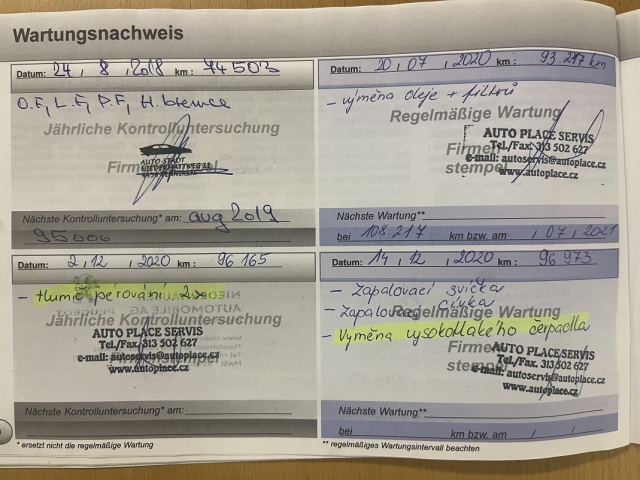 Wartungsnachweis
Datum: 24, 8, 2018 km: 74503
O.F, L.F, P.F, H.bremce
Jährliche Kontrolluntersuchung
Firmenstempel
AUTO-STADT
NIEDERMATTWEG 11
Nächste Kontrolluntersuchung* am: aug 2019
95000
Datum: 20, 07, 2020 km: 93.217 km
- výměna oleje + filtrů
Regelmäßige Wartung
Firmenstempel
AUTO PLACE SERVIS
Tel./Fax. 313 502 627
e-mail: autoservis@autoplace.cz
www.autoplace.cz
Nächste Wartung**
bei 108.217 km bzw. am 1, 07, 2021
Datum: 2, 12, 2020 km: 96 165
- tlumič pérování 2x
Jährliche Kontrolluntersuchung
AUTO PLACE SERVIS
Tel./Fax. 313 502 627
e-mail: autoservis@autoplace.cz
www.autoplace.cz
Nächste Kontrolluntersuchung* am:
* ersetzt nicht die regelmäßige Wartung
Datum: 14, 12, 2020 km: 96 973
- Zapalovací svíčka
- Zapalovací cívka
Regelmäßige Wartung
- Výměna vysokotlakého čerpadla
Firmenstempel
AUTO PLACE SERVIS
Tel./Fax. 313 502 627
e-mail: autoservis@autoplace.cz
www.autoplace.cz
Nächste Wartung**
bei km bzw. am
** regelmäßiges Wartungsintervall beachten